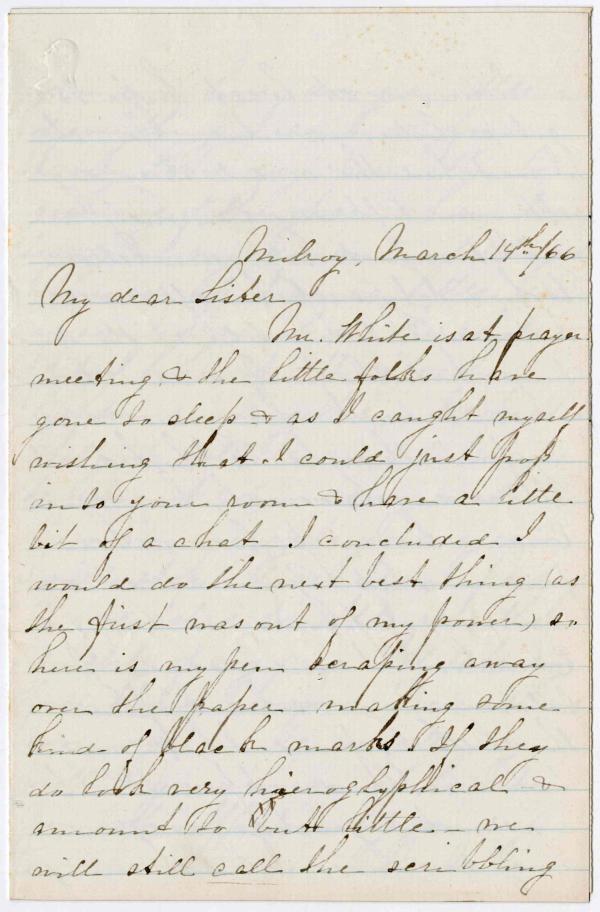 Milroy, March 14th/66
My dear Sister
Mr. White is at prayer
meeting & the little folks have
gone to sleep & as I caught myself
wishing that I could just pop
into your room & have a little
bit of a chat I concluded I
would do the next best thing (as
the first was out of my power) so
here is my pen scraping away
over the paper making some
kind of black marks. If they
do look very hieroglyphical &
amount to but little – we
will still call the scribbling